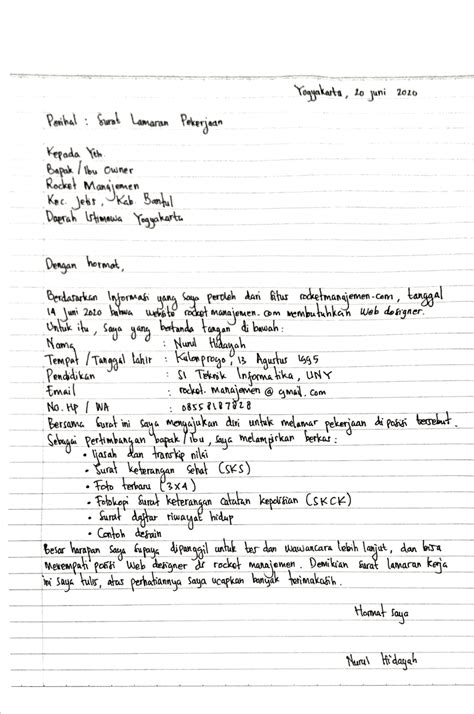 Yogyakarta, 20 Juni 2020
Perihal : Surat Lamaran Pekerjaan
Kepada Yth.
Bapak / Ibu Owner
Rocket Manajemen
Kec. Jetis, Kab. Bantul
Daerah Istimewa Yogyakarta
Dengan hormat,
Berdasarkan Informasi yang saya peroleh dari situs rocketmanajemen.com, tanggal
14 Juni 2020 bahwa website rocketmanajemen.com membutuhkan web designer.
Untuk itu, saya yang bertanda tangan di bawah :
Nama : Nurul Hidayah
Tempat / Tanggal lahir : Kulonprogo, 13 Agustus 1995
Pendidikan : S1 Teknik Informatika, UNY
Email : rocket.manajemen@gmail.com
No. HP / WA : 08558187828
Bersama surat ini saya mengajukan diri untuk melamar pekerjaan di posisi tersebut.
Sebagai pertimbangan bapak / ibu, saya melampirkan berkas :
• Ijasah dan transkip nilai
• Surat keterangan Sehat (SKS)
• Foto terbaru (3x4)
• Fotokopi surat keterangan catatan kepolisian (SKCK)
• Surat daftar riwayat hidup
• Contoh desain
Besar harapan saya supaya dipanggil untuk tes dan wawancara lebih lanjut, dan bisa
menempati posisi web designer di rocket manajemen. Demikian surat lamaran kerja
ini saya tulis, atas perhatiannya saya ucapkan banyak terimakasih.
Hormat saya
Nurul Hidayah